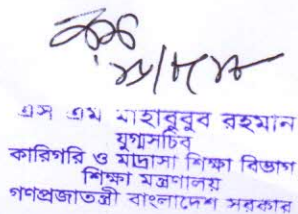 এস এম মাহাবুবুব রহমান
যুগ্মসচিব
কারিগরি ও মাদ্রাসা শিক্ষা বিভাগ
শিক্ষা মন্ত্রণালয়
গণপ্রজাতন্ত্রী বাংলাদেশ সরকার